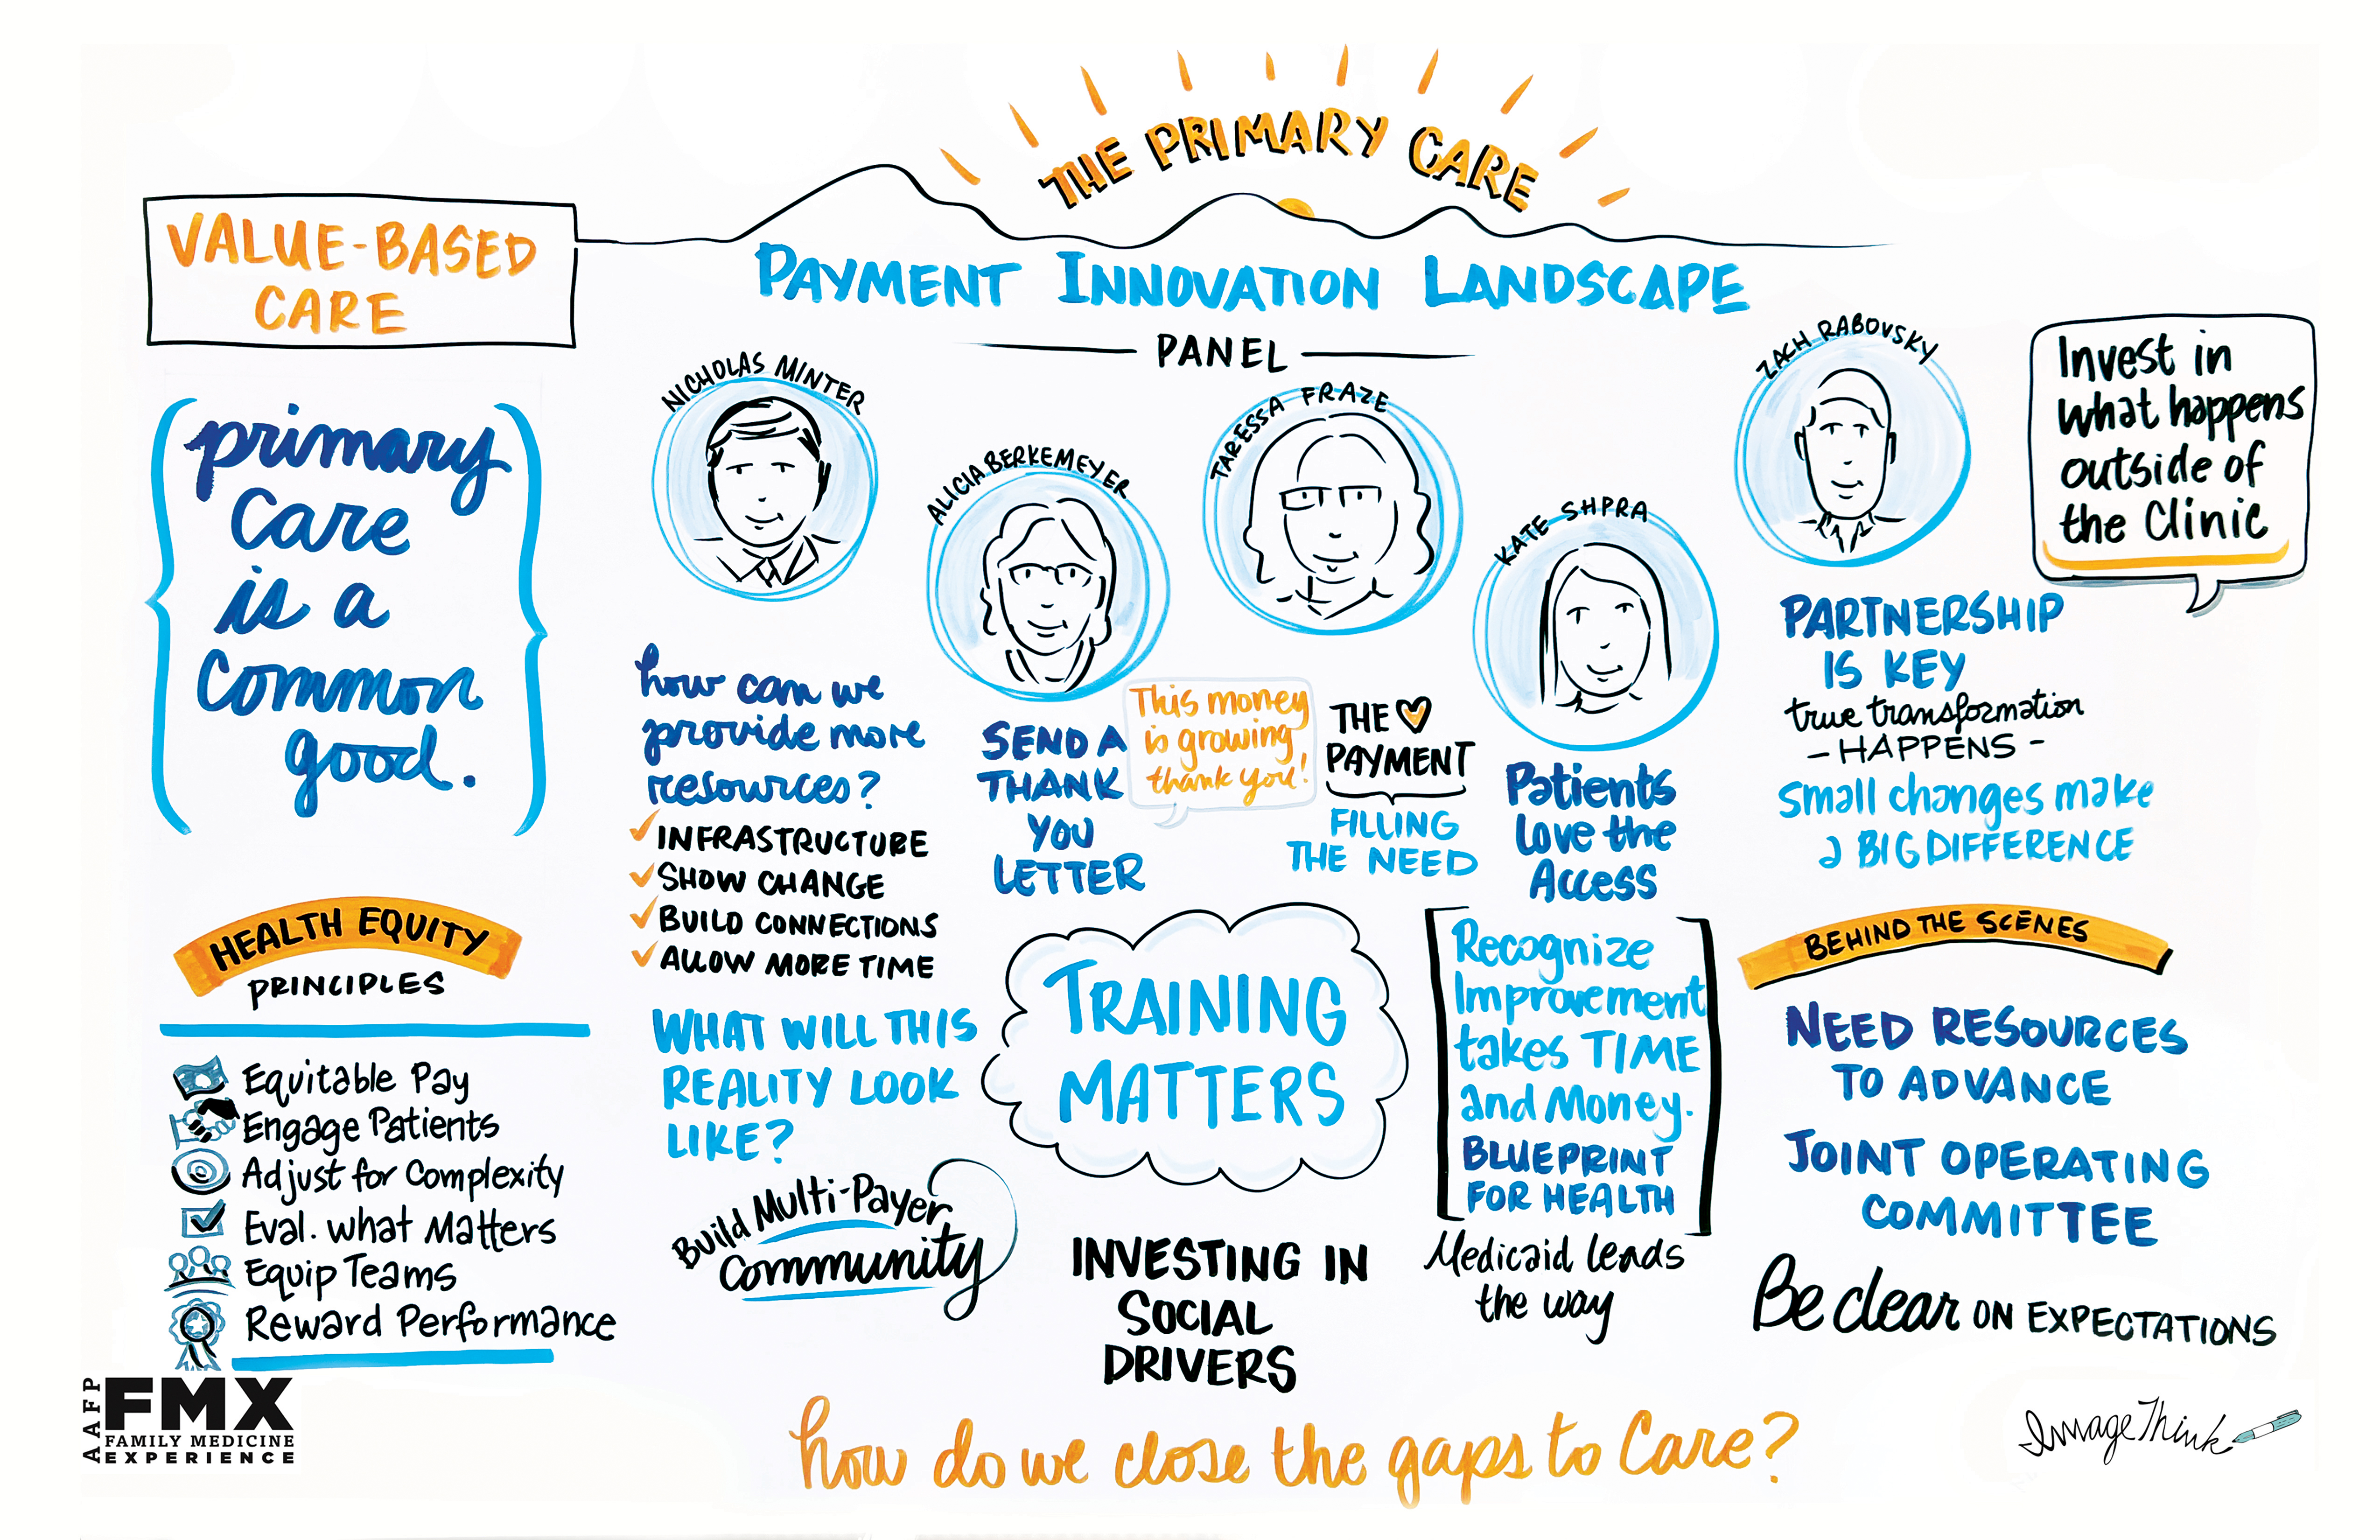 THE PRIMARY CARE
VALUE-BASED
CARE
PAYMENT INNOVATION LANDSCAPE
PANEL
primary
Care
is a
Common
good.
HEALTH EQUITY
PRINCIPLES
Equitable Pay
Engage Patients
Adjust for Complexity
Eval. what Matters
Equip Teams
Reward Performance
NICHOLAS MINTER
how can we
provide more
resources?
INFRASTRUCTURE
SHOW CHANGE
BUILD CONNECTIONS
ALLOW MORE TIME
WHAT WILL THIS
REALITY LOOK
LIKE?
Build Multi-Payer
Community
ALICIA BERKEMEYER
SEND A
THANK
YOU
LETTER
This money
is growing
thank you!
TARESSA FRAZE
THE
PAYMENT
FILLING
THE NEED
TRAINING
MATTERS
INVESTING IN
SOCIAL
DRIVERS
KATE SHPRA
Patients
Love the
Access
Recognize
Improvement
takes TIME
and Money.
BLUEPRINT
FOR HEALTH
Medicaid leads
the way
ZACH RABOVSKY
Invest in
what happens
outside of
the Clinic
PARTNERSHIP
IS KEY
true transformation
- HAPPENS -
Small changes make
a BIG DIFFERENCE
BEHIND THE SCENES
NEED RESOURCES
TO ADVANCE
JOINT OPERATING
COMMITTEE
Be clear ON EXPECTATIONS
how do we close the gaps to Care?
AAFP
FMX
FAMILY MEDICINE
EXPERIENCE
ImageThink